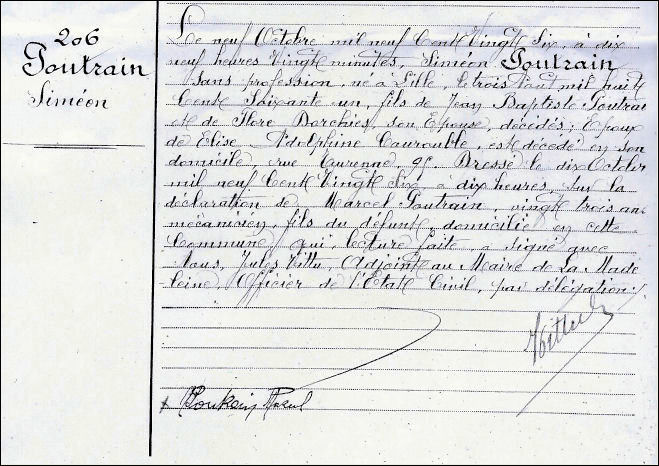 206
Poutrain
Siméon
Le neuf Octobre mil neuf Cent Vingt Six, à dix
neuf heures Vingt minutes, Siméon Poutrain
sans profession, né à Lille, le trois Aout mil huit
Cent Soixante un, fils de Jean Baptiste Poutrain
et de Flore Dorchies, son Epouse, décédés; Epoux
de Elise Adolphine Caurouble, est décédé en son
domicile, rue Turenne, 95. Dressé le dix Octobre
mil neuf Cent Vingt Six, à dix heures, sur la
déclaration de Marcel Poutrain, vingt trois ans
mécanicien, fils du défunt domicilié en cette
Commune, qui, lecture faite, a signé avec
Nous, Jules Vittu, Adjoint au Maire de La Made
leine, Officier de l'Etat Civil, par délégation.